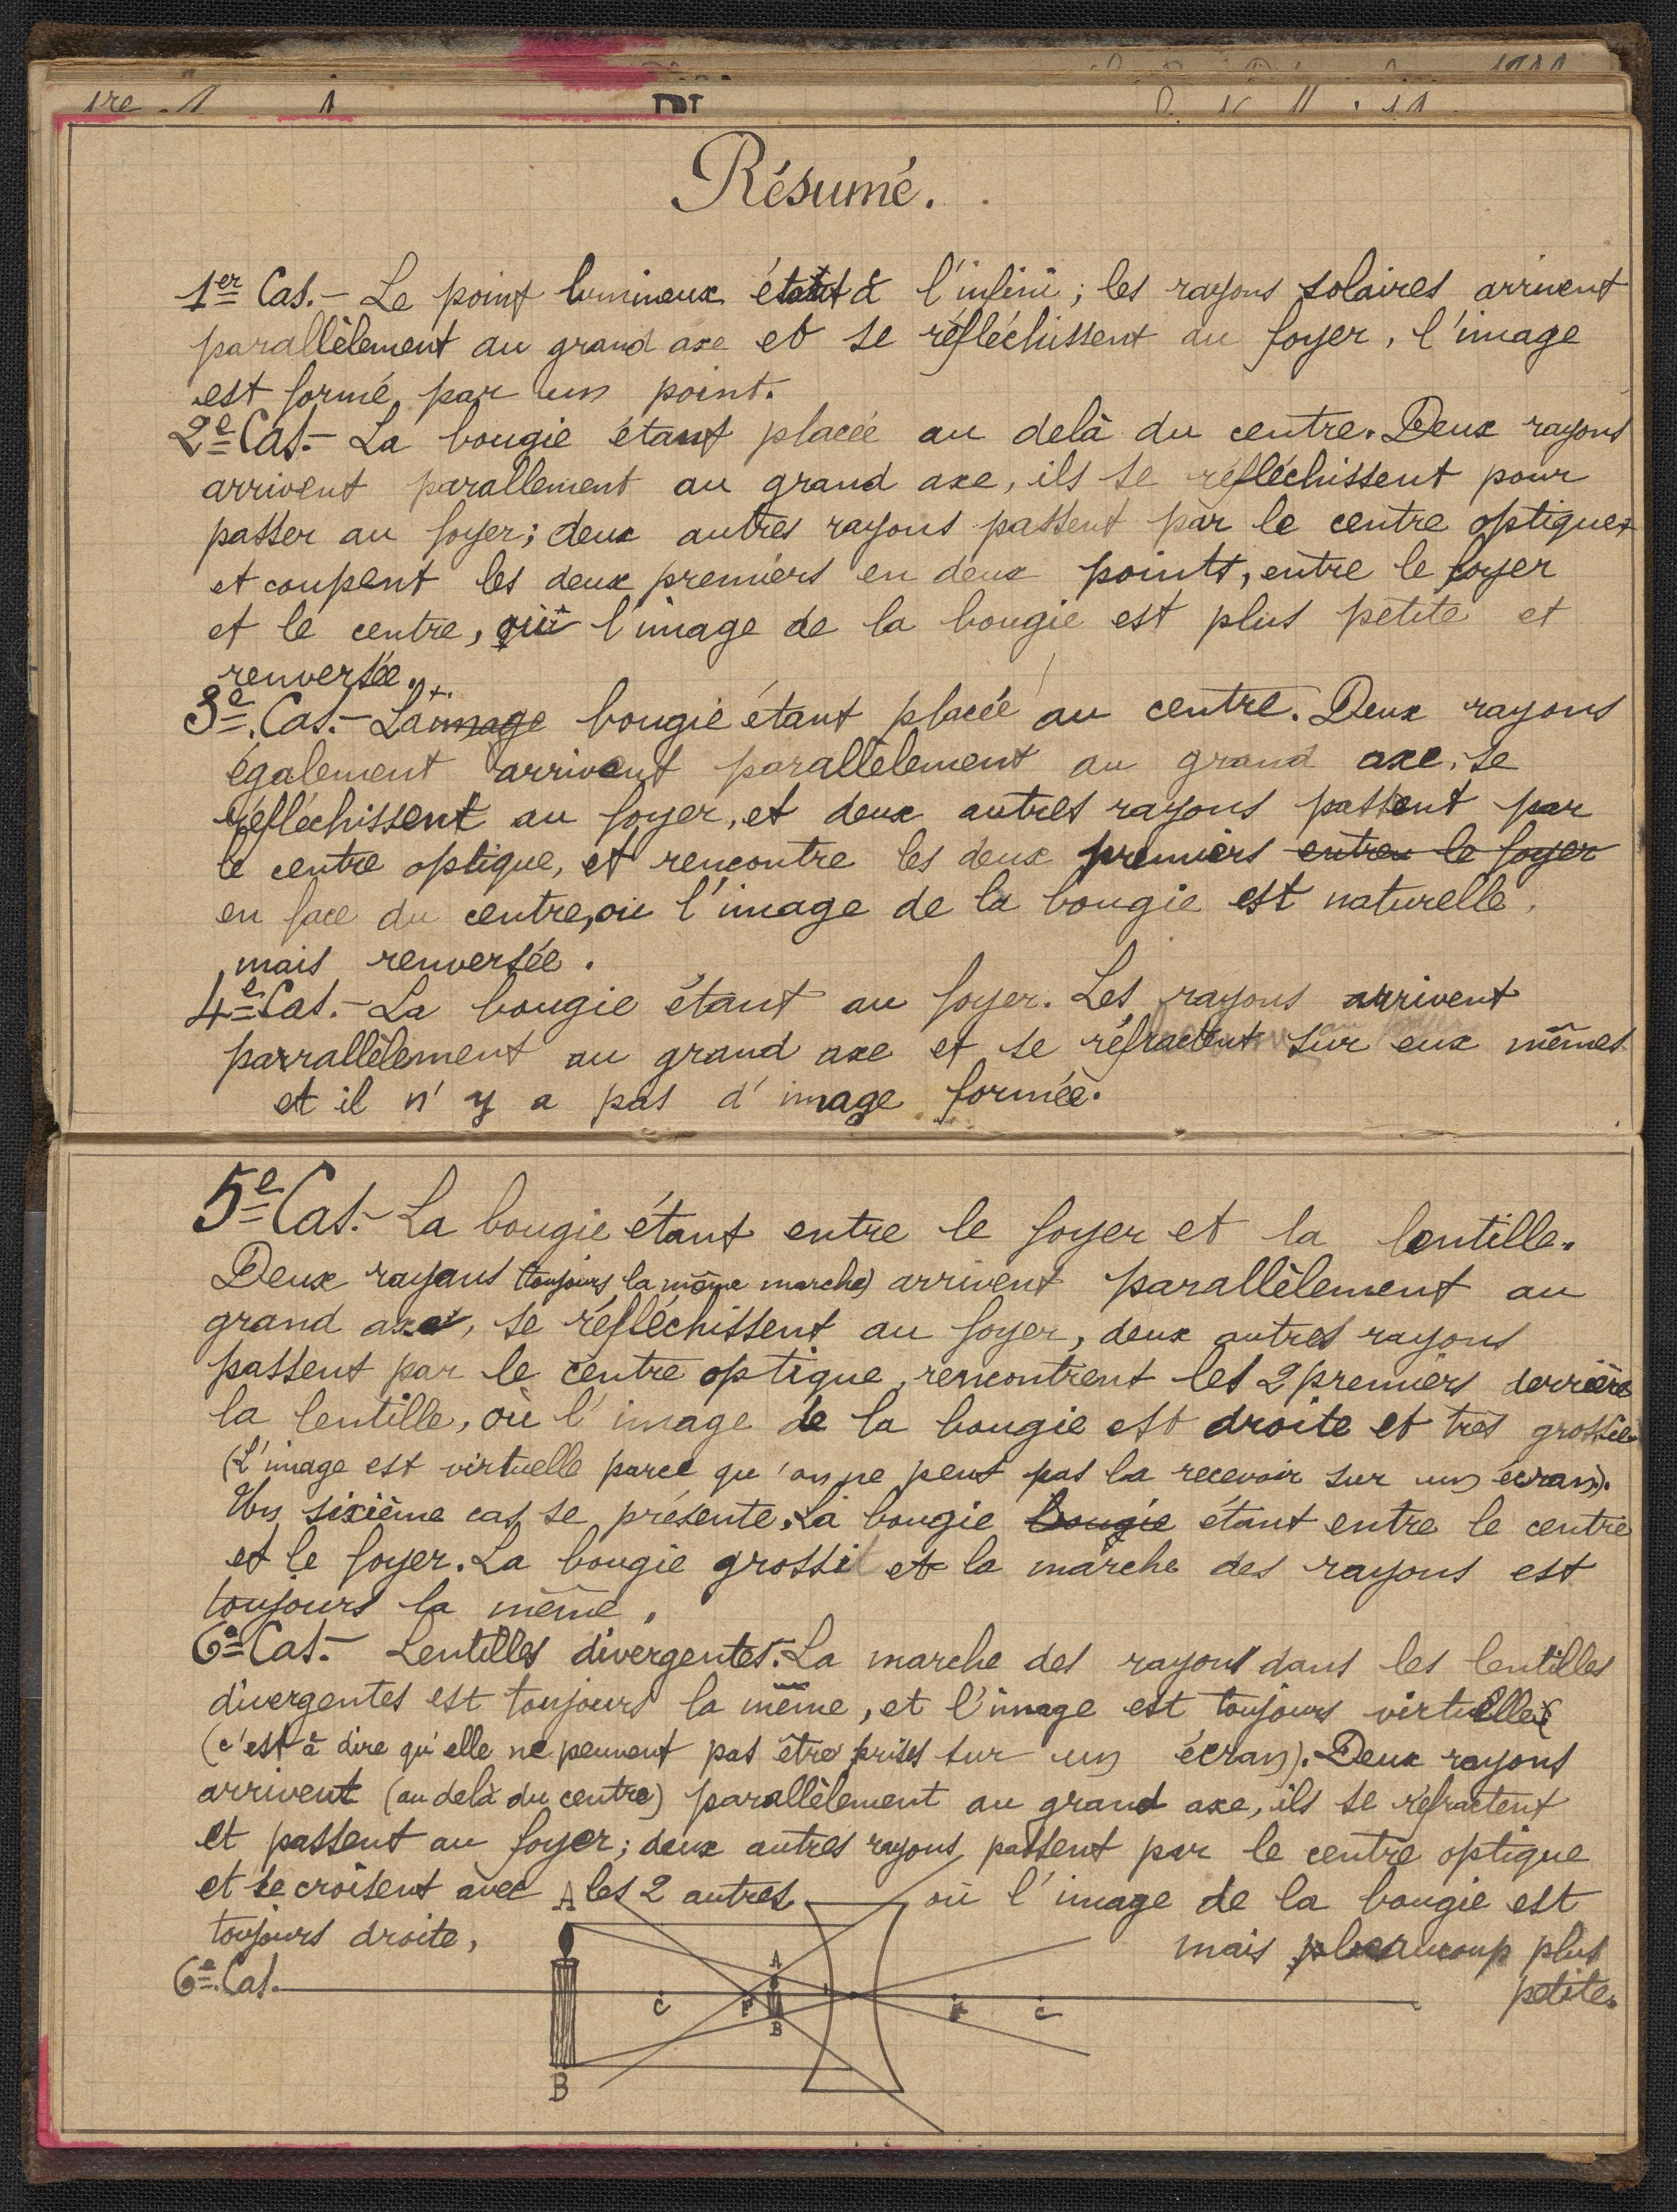 Résumé.
1er Cas.- Le point lumineux étant à l'infini; les rayons solaires arrivent
parallèlement au grand axe et se réfléchissent au foyer, l'image
est formé par un point.
2e Cas.- La bougie étant placée au delà du centre. Deux rayons
arrivent parallement au grand axe, ils se réfléchissent pour
passer au foyer; deux autres rayons passent par le centre optique
et coupent les deux premiers en deux points, entre le foyer
et le centre, où l'image de la bougie est plus petite et
renversée.
3e Cas.- La image bougie étant placée au centre. Deux rayons
également arrivent parallèlement au grand axe, se
réfléchissent au foyer, et deux autres rayons passent par
le centre optique, et rencontre les deux premiers entre le foyer
en face du centre, où l'image de la bougie est naturelle,
mais renversée.
4e Cas.- La bougie étant au foyer. Les rayons arrivent
parrallèlement au grand axe et se réfractent sur eux mêmes
et il n'y a pas d'image formée.
5e Cas.- La bougie étant entre le foyer et la lentille.
Deux rayons (toujours la même marche) arrivent parallèlement au
grand axe, se réfléchissent au foyer, deux autres rayons
passent par le centre optique, rencontrent les 2 premiers derrière
la lentille, où l'image de la bougie est droite et très grossie.
(L'image est virtuelle parce qu'on ne peut pas la recevoir sur un écran).
Un sixième cas se présente. La bougie bougie étant entre le centre
et le foyer. La bougie grossit et la marche des rayons est
toujours la même.
6e Cas.- Lentilles divergentes. La marche des rayons dans les lentilles
divergentes est toujours la même, et l'image est toujours virtuelle
(c'est à dire qu'elle ne peuvent pas être prises sur un écran). Deux rayons
arrivent (au delà du centre) parallèlement au grand axe, ils se réfractent
et passent au foyer; deux autres rayons passent par le centre optique
et se croisent avec les 2 autres où l'image de la bougie est
toujours droite, mais beaucoup plus
petite.
6e Cas.
A
A
C F F C
B
B